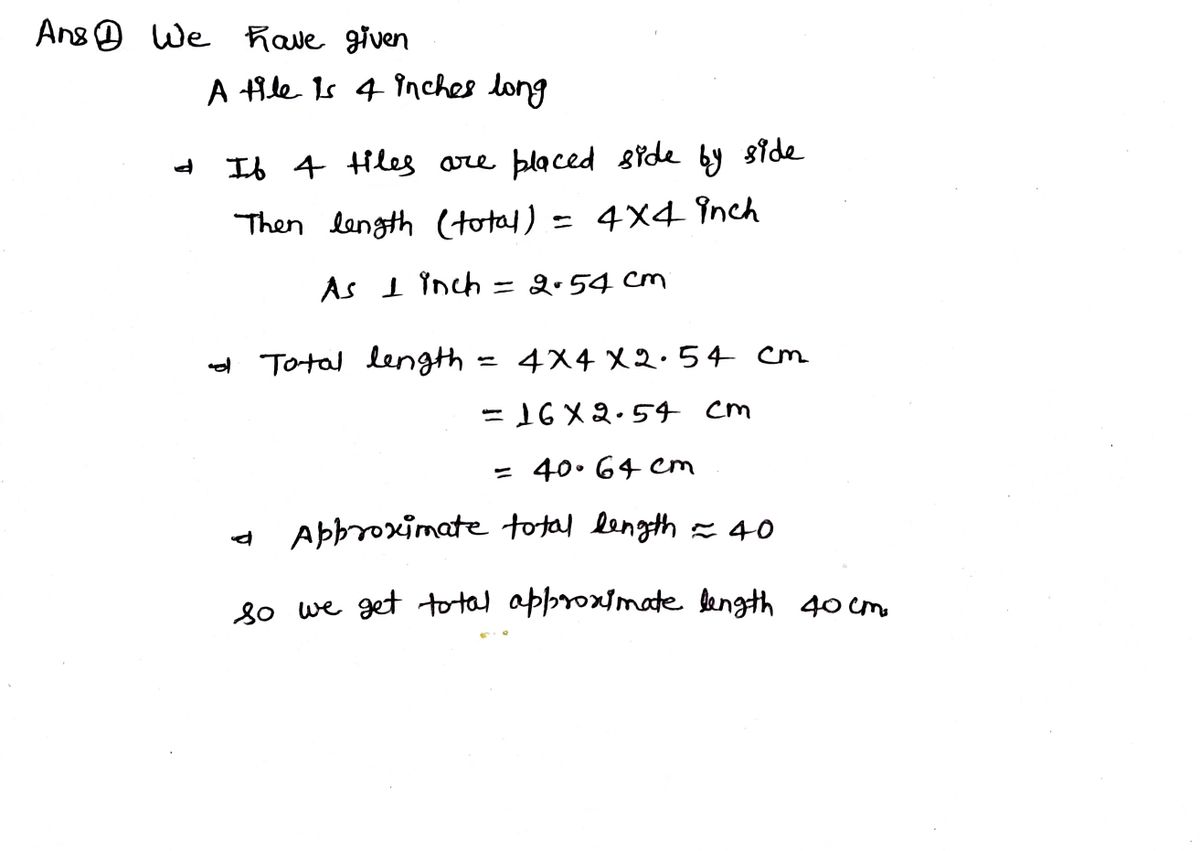 Ans ① We have given
A tile is 4 inches long
⇒ If 4 tiles are placed side by side
Then length (total) = 4×4 inch
As 1 inch = 2.54 cm
⇒ Total length = 4×4×2.54 cm
= 16×2.54 cm
= 40.64 cm
⇒ Approximate total length ≈ 40
so we get total approximate length 40 cm.